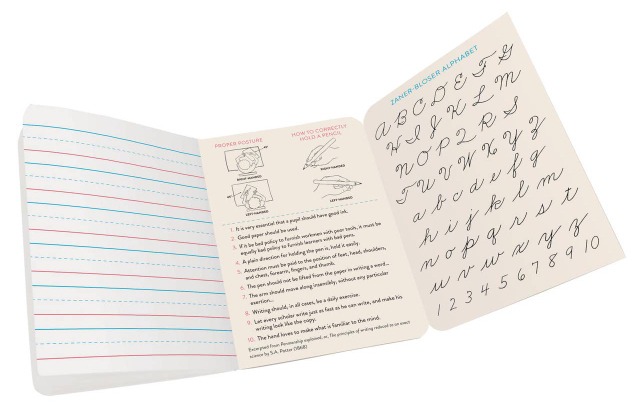 PROPER POSTURE
HOW TO CORRECTLY
HOLD A PENCIL
RIGHT-HANDED
RIGHT-HANDED
LEFT-HANDED
LEFT-HANDED
1. It is very essential that a pupil should have good ink.
2. Good paper should be used.
3. If it be bad policy to furnish workmen with poor tools, it must be
equally bad policy to furnish learners with bad pens.
4. A plain direction for holding the pen is, hold it easily.
5. Attention must be paid to the position of feet, head, shoulders,
and chest, forearm, fingers, and thumb.
6. The pen should not be lifted from the paper in writing a word...
7. The arm should move along insensibly, without any particular
exertion...
8. Writing should, in all cases, be a daily exercise.
9. Let every scholar write just as fast as he can write, and make his
writing look like the copy.
10. The hand loves to make what is familiar to the mind.
Excerpted from Penmanship explained, or, The principles of writing reduced to an exact
science by S.A. Potter (1868)
ZANER-BLOSER ALPHABET
A B C D E F G
H I J K L M
N O P Q R S
T U V W X Y Z
a b c d e f g
h i j k l m
n o p q r s t
u v w x y z
1 2 3 4 5 6 7 8 9 10